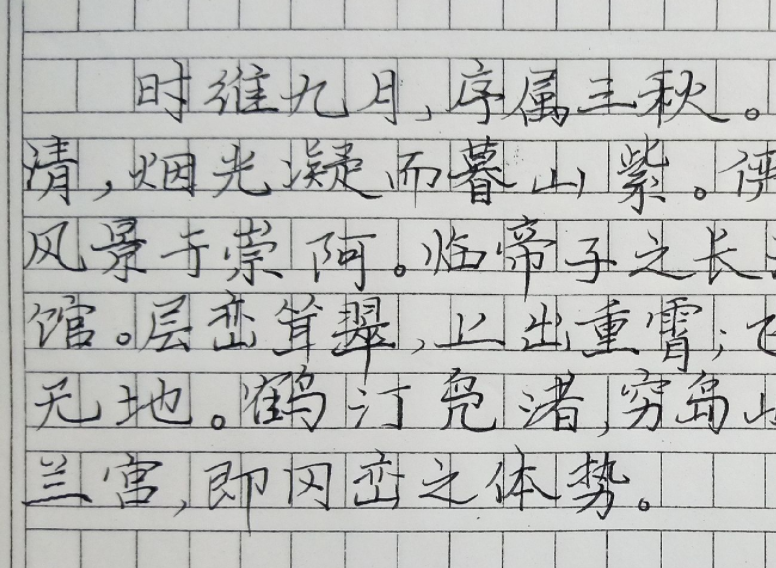 时维九月,序属三秋。
清,烟光凝而暮山紫。
风景于崇阿。临帝子之长
馆。层峦耸翠,上出重霄;飞
无地。鹤汀凫渚,穷岛
兰宫,即冈峦之体势。